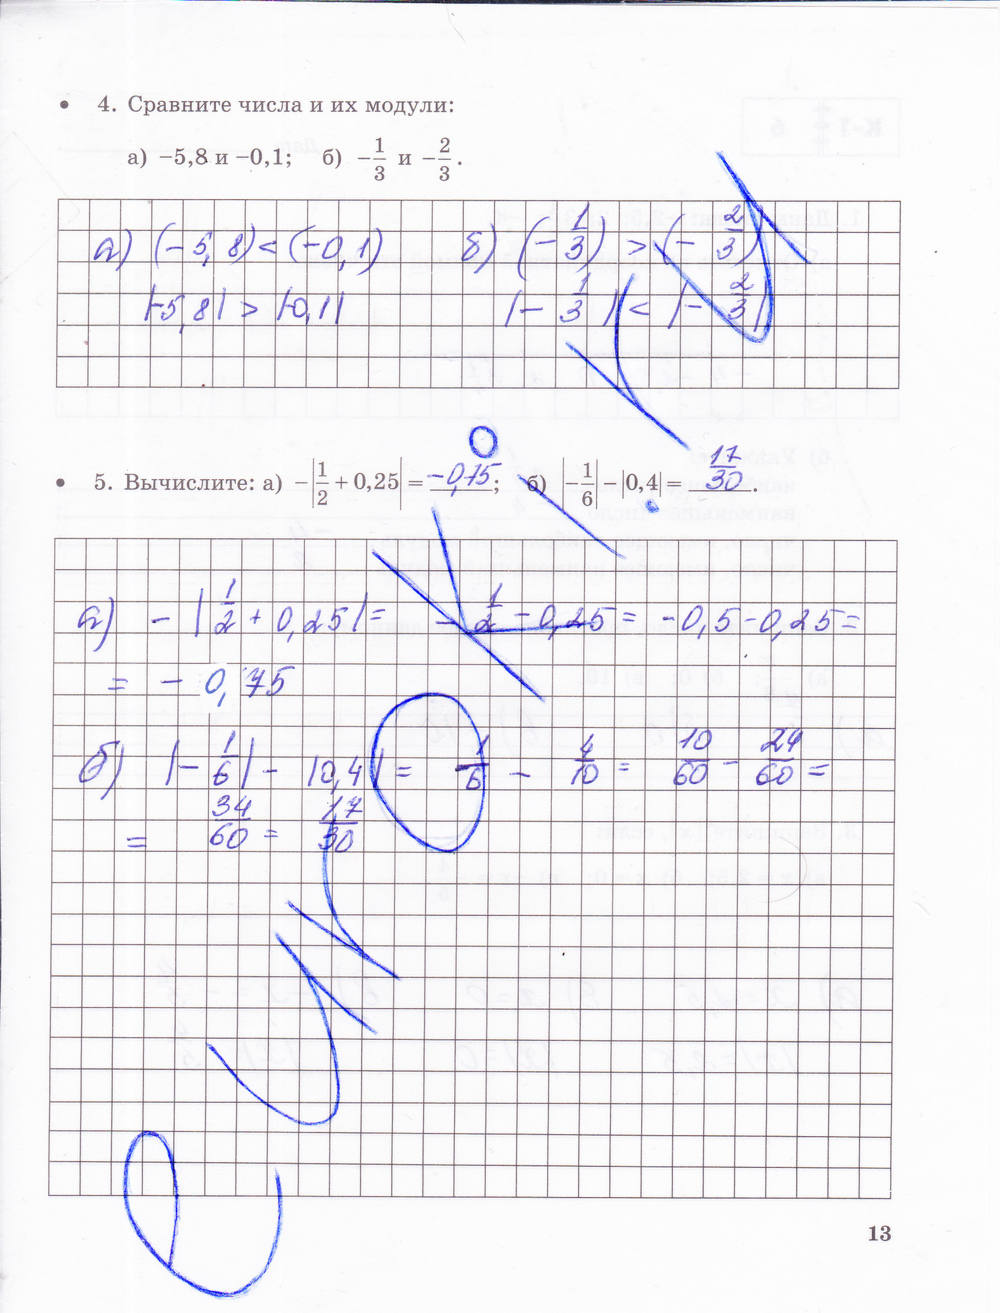 • 4. Сравните числа и их модули:
а) −5,8 и −0,1; б) −1/3 и −2/3.
а) (−5,8) < (−0,1) б) (−1/3) > (−2/3)
|−5,8| > |−0,1| |−1/3| < |−2/3|
• 5. Вычислите: а) −|1/2 + 0,25| = −0,75; б) |−1/6| − |0,4| = 17/30.
а) −|1/2 + 0,25| = −1/2 − 0,25 = −0,5 − 0,25 =
= −0,75
б) |−1/6| − |0,4| = −1/6 − 4/10 = 10/60 − 24/60 =
= 34/60 = 17/30
13